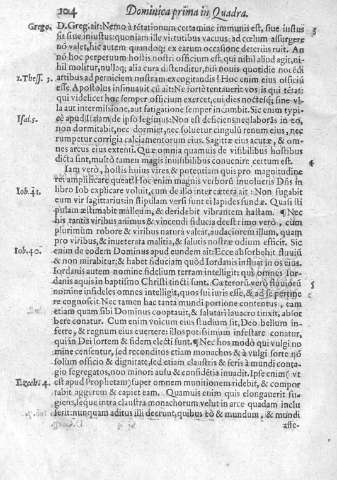 104 Dominica prima in Quadra.
Grego. D. Greg. ait: Nemo à tétationum certamine immunis est, siue iustus
sit siue iniustus: quoniam illi virtutibus vacuus, ad cœlum assurgere
nó valet, hic autem quandoq; ex earum occasione deterius ruit. An
nò hoc perpetuum hostis nostri officium est, qui nihil aliud agit, ni-
hil molitur, nulloq; alia cura distenditur, nisi nouis quotidie nocédi
1. Thess. 3. artibus ad perniciem nostram excogitandis? Hoc enim eius officiú
esse Apostolus insinuauit cú ait: Ne forte tentauerit vos is qui tétat:
qui videlicet hoc semper officium exercet, cui dies noctesq; sine vl-
la aut intermissione, aut fatigatione semper incumbit. Sic enim
Isai. 5. apud Isaiam de ipso legitur: Non est deficiens neq; laborás in eo,
non dormitabit, nec dormiet, nec soluetur cingulú renum eius, nec
rumpetur corrigia calciamentorum eius. Sagittæ eius acutæ, & om-
nes arcus eius extenti. Quæ omnia quamuis de visibilibus hostibus
dicta sint, multò tamen magis inuisibilibus conuenire certum est.
Iam verò, hostis huius vires & potentiam quis pro magnitudine
rei amplificare queat? Hoc enim magnis verború inuolucris Dñs in
Iob. 41. libro Iob explicare voluit, cum de illo inter cætera ait: Non fugabit
eum vir sagittarius in stipulam versi sunt ei lapides fundæ. Quasi sti
pulam æstimabit malleum, & deridebit vibrantem hastam. ¶ Nec
his tantis viribus armatus & vincendi fiducia deest: imo verò, cùm
plurimùm robore & viribus natura valeat, audaciorem illum, quam
pro viribus, & inueterata malitia, & salutis nostræ odium efficit. Sic
Iob. 40. enim de eodem Dominus apud eundem ait: Ecce absorbebit fluuiú
& non mirabitur, & habet fiduciam quòd Iordanis influat in os eius.
Iordanis autem nomine fidelium terram intelligit, qui omnes Ior-
danis aquis in baptismo Christi tincti sunt. Cæterorú verò fluuiorú
nomine infideles omnes intelligit, quos sui iuris esse, & ad se pertine
re cognoscit. Nec tamen hac tanta mundi portione contentus, eam
etiam quam sibi Dominus cooptauit, & salutari lauacro tinxit, absor
bere conatur. Cum enim vnicum eius studium sit, Deo bellum in-
ferre, & regnum eius euertere: illos potissimum infestare conatur,
qui in Dei sortem & fidem electi sunt. ¶ Nec hos modò qui vulgi no
mine censentur, sed reconditos etiam monachos & à vulgi sorte nó
solum officio & dignitate, sed etiam claustris & seris à mundi conta-
gio segregatos, non minori ausu & confidétia inuadit. Ipse enim (vt
Ezech. 4. est apud Prophetam) super omnem munitionem ridebit, & compor
tabit aggerem & capiet eam. Quamuis enim quis elongauerit fu-
giens, seque intra claustra monachorum velut in arce quadam inclu
serit nunquam aditus illi deerunt, quibus eò & mundum, & mundi
aste-